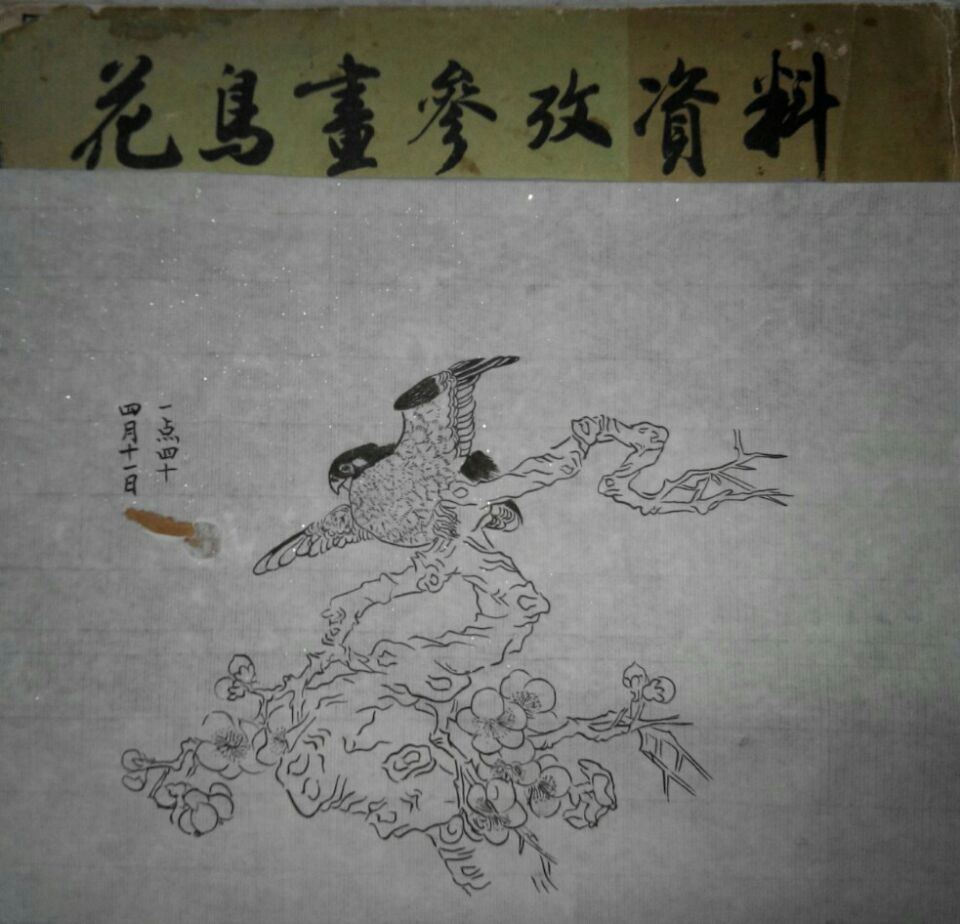 花鳥畫參攷資料
四月十一日
一点四十